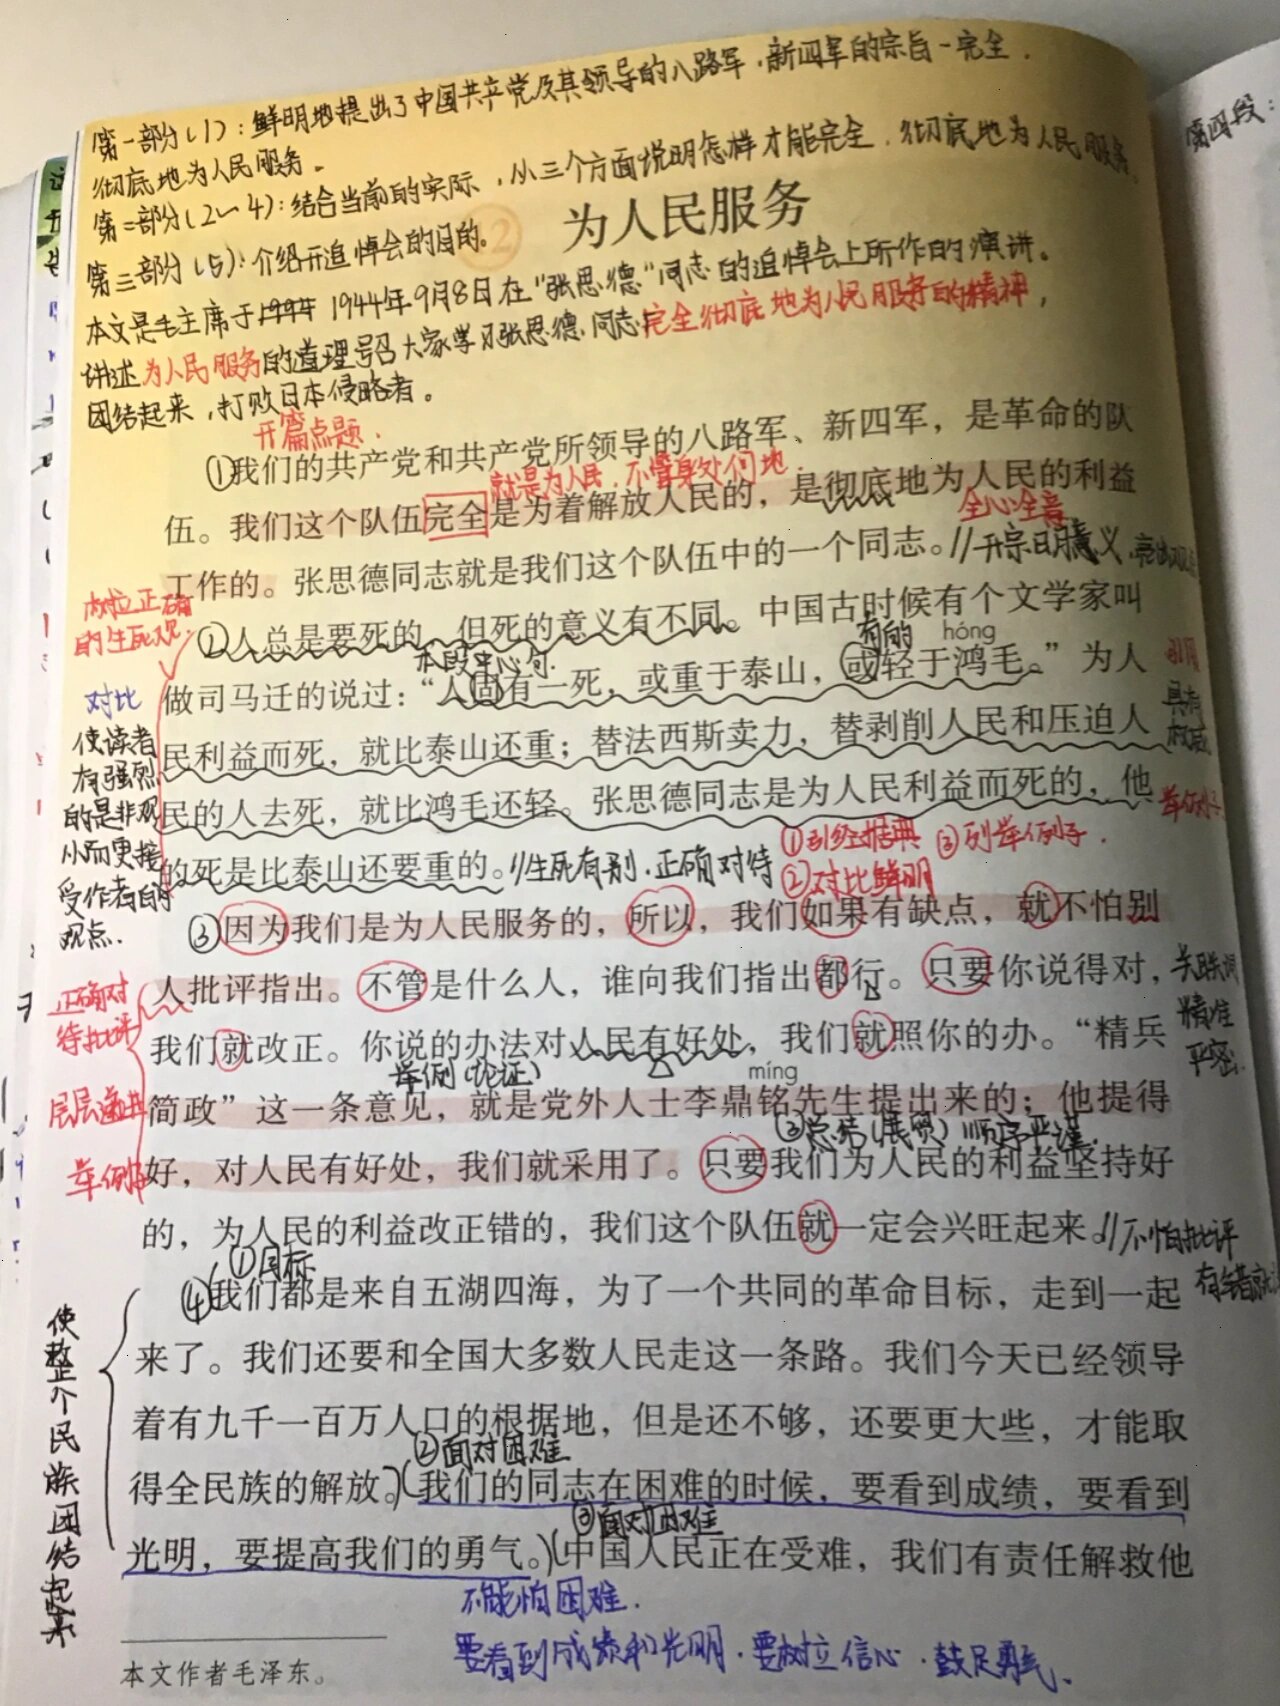 第一部分(1)：鲜明地提出了中国共产党及其领导的八路军、新四军的宗旨－完全、
彻底地为人民服务。
第二部分(2～4)：结合当前的实际，从三个方面说明怎样才能完全、彻底地为人民服务。
第四段：
12 为人民服务
第三部分(5)：介绍开追悼会的目的。
本文是毛主席于1944年9月8日在“张思德”同志的追悼会上所作的演讲。
讲述为人民服务的道理号召大家学习张思德同志完全彻底地为人民服务的精神，
团结起来，打败日本侵略者。
开篇点题.
①我们的共产党和共产党所领导的八路军、新四军，是革命的队
就是为人民，不管身处何地.
伍。我们这个队伍完全是为着解放人民的，是彻底地为人民的利益
全心全意
工作的。张思德同志就是我们这个队伍中的一个同志。//开宗明义，
树立正确
的生死观
②人总是要死的，但死的意义有不同。中国古时候有个文学家叫
本段中心句.
有的 hóng
做司马迁的说过：“人固有一死，或重于泰山，或轻于鸿毛。”为人
引用
具有
权威
对比
使读者
有强烈
的是非观
从而更接
受作者的
观点.
民利益而死，就比泰山还重；替法西斯卖力，替剥削人民和压迫人
民的人去死，就比鸿毛还轻。张思德同志是为人民利益而死的，他
举例子
的死是比泰山还要重的。//生死有别，正确对待
①引经据典 ③列举例子.
②对比鲜明
③因为我们是为人民服务的，所以，我们如果有缺点，就不怕别
人批评指出。不管是什么人，谁向我们指出都行。只要你说得对，
正确对
待批评
关联词
精准
严密.
我们就改正。你说的办法对人民有好处，我们就照你的办。“精兵
举例(论证)
míng
层层递进
简政”这一条意见，就是党外人士李鼎铭先生提出来的；他提得
顺序严谨.
举例子
好，对人民有好处，我们就采用了。只要我们为人民的利益坚持好
的，为人民的利益改正错的，我们这个队伍就一定会兴旺起来。//不怕批评
①目标
④我们都是来自五湖四海，为了一个共同的革命目标，走到一起
来了。我们还要和全国大多数人民走这一条路。我们今天已经领导
着有九千一百万人口的根据地，但是还不够，还要更大些，才能取
②面对困难
得全民族的解放。)(我们的同志在困难的时候，要看到成绩，要看到
③面对困难
光明，要提高我们的勇气。)(中国人民正在受难，我们有责任解救他
使整个民族团结起来
不能怕困难.
要看到成绩和光明，要树立信心，鼓足勇气.
本文作者毛泽东。